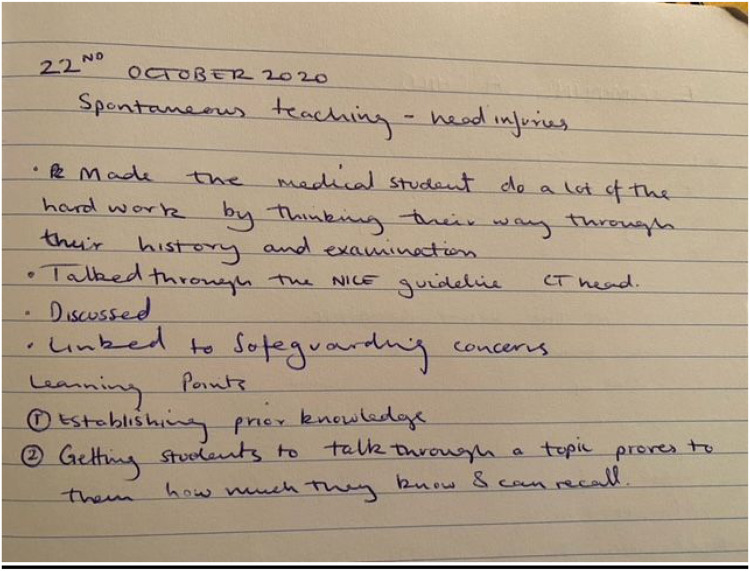 22ND OCTOBER 2020
Spontaneous teaching - head injuries
• Made the medical student do a lot of the
hard work by thinking their way through
their history and examination
• Talked through the NICE guideline CT head.
• Discussed
• Linked to Safeguarding concerns
Learning Points
① Establishing prior knowledge
② Getting students to talk through a topic proves to
them how much they know & can recall.